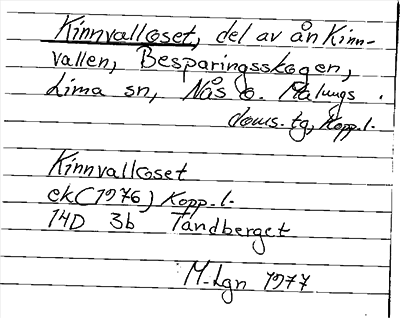 Kinnvalloset, del av ån Kinn-
vallen, Besparingsskogen,
Lima sn, Nås o. Malungs
doms. tg, Kopp. l.
Kinnvalloset
ek (1976) Kopp. l.
14D 3b Tandberget
M. Lgn 1977